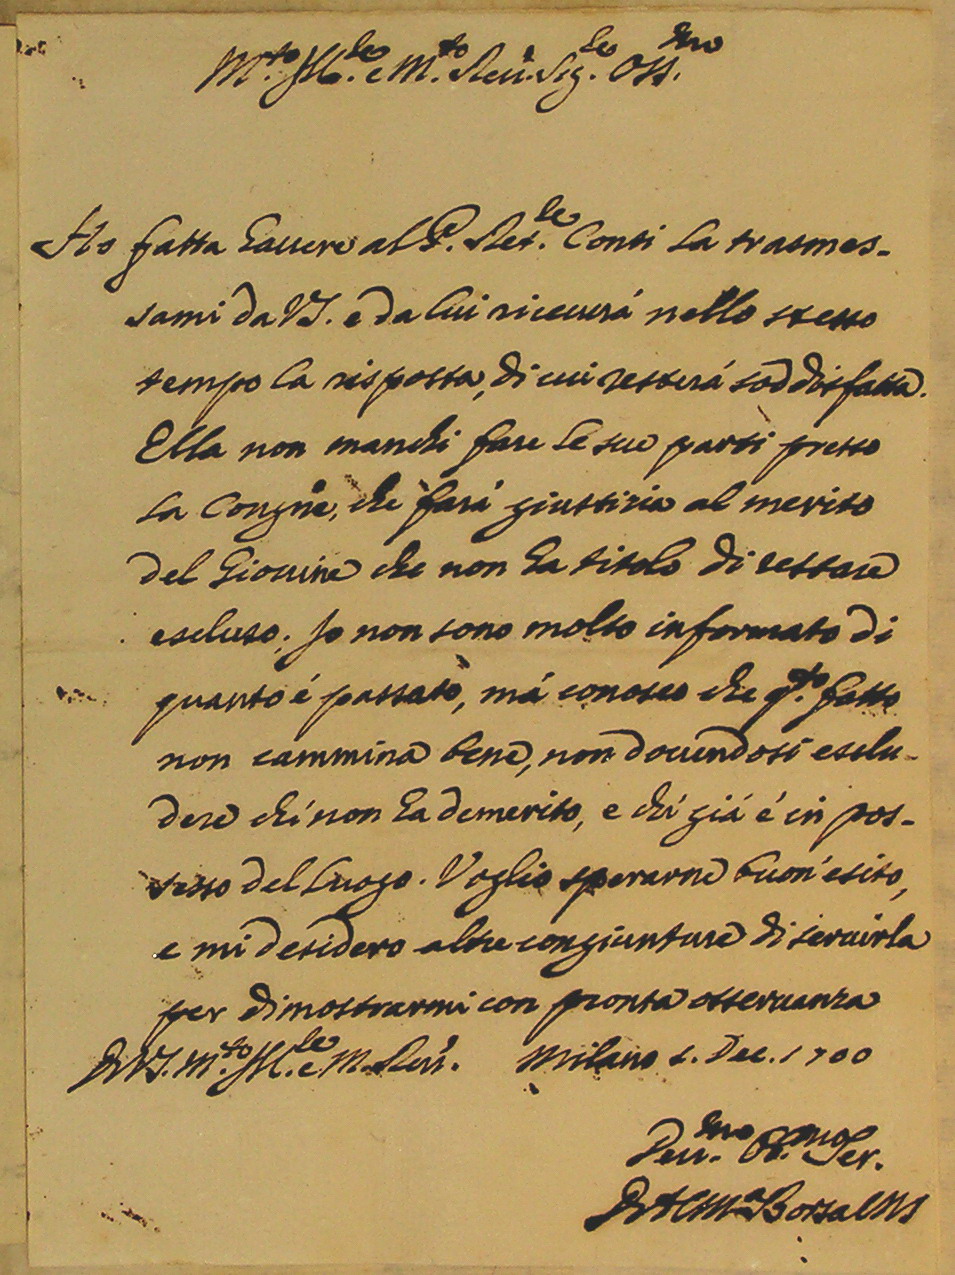 M.to Ill.re e M.to Reu. Sig.re Oss.mo
Ho fatta hauere al P. Ret.le Conti la trasmes-
sami da VS. e da lui riceuerá nello stesso
tempo la risposta, di cui resterá soddisfatta.
Ella non manchi fare le sue parti presso
la Congne, che fará giustizia al merito
del Giouine che non ha titolo di restare
escluso. Io non sono molto informato di
quanto é passato, má conosco che q.to fatto
non cammina bene, non douendosi esclu-
dere chí non ha demerito, e chí giá é in pos-
sesso del luogo. Voglio sperarne buon'esito,
e mi desidero altre congiunture di seruirla
per dimostrarmi con pronta osseruanza
Di VS. M.to Ill.re e M. Reu. Milano Dec. 1700
Deu.mo Ob.mo Ser.